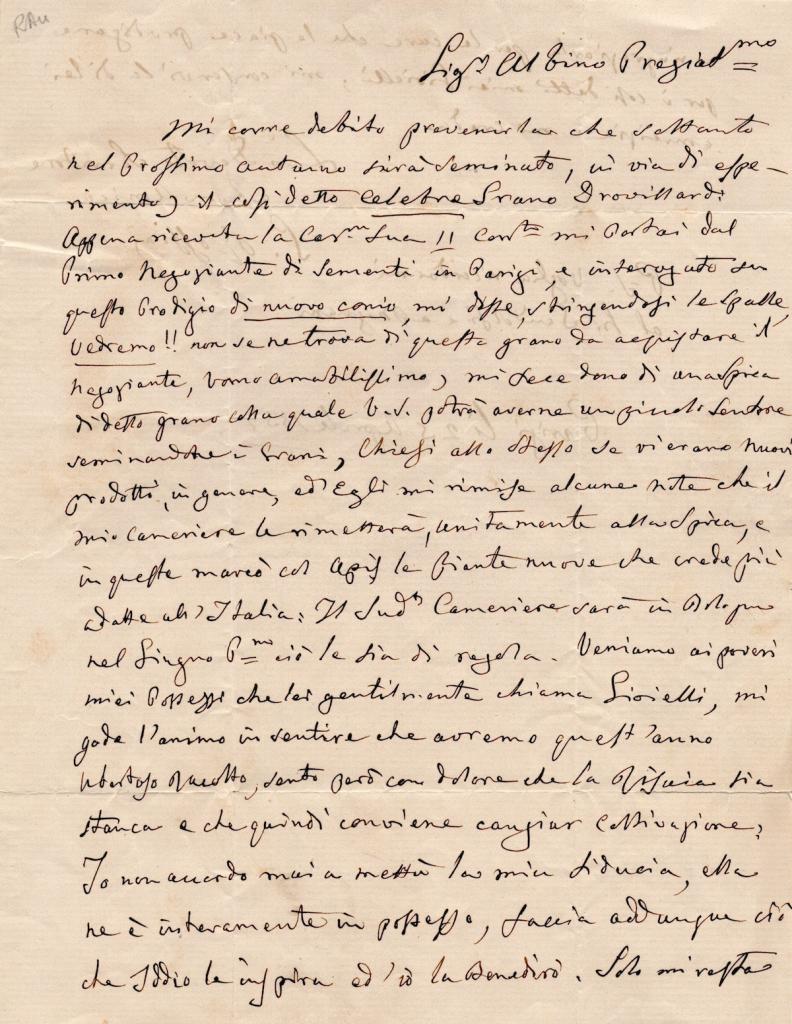 RAu
Sig.r Albino Pregiat.mo
Mi corre debito prevenirla che soltanto
nel Prossimo autunno sarà seminato, in via di espe-
rimento, il così detto Celebre Grano Drouillard:
Appena ricevuta la Car.ma Sua 11 Corr.te mi Portai dal
Primo Negoziante di Sementi in Parigi, e interogato su
questo Prodigio di nuovo conio, mi disse, stringendosi le Spalle,
Vedremo!! non se ne trova di questo grano da acquistare il
Negoziante, Uomo amabilissimo, mi fece dono di una Spica
di detto grano colla quale V.S. potrà averne un piccolo Sentore
seminandone i Grani, Chiesi allo Stesso se vi erano Nuovi
prodotti, in genere, ed Egli mi rimise alcune note che il
mio Cameriere le rimetterà, unitamente alla Spica, e
in queste marcò col apis le Piante nuove che crede più
adatte all'Italia: Il Sud.to Cameriere sarà in Bologna
nel Giugno P.mo ciò le sia di regola. Veniamo ai poveri
miei Possessi che lei gentilmente chiama Gioielli, mi
gode l'animo in sentire che avremo quest'anno
Ubertoso Racolto, sento però con dolore che la Risaia sia
stanca e che quindi conviene cangiar Coltivazione,
Io non accordo mai a metta la mia fiducia, ella
ne è interamente in possesso, faccia addunque ciò
che Iddio le inspira ed io la Benedirò. Solo mi resta